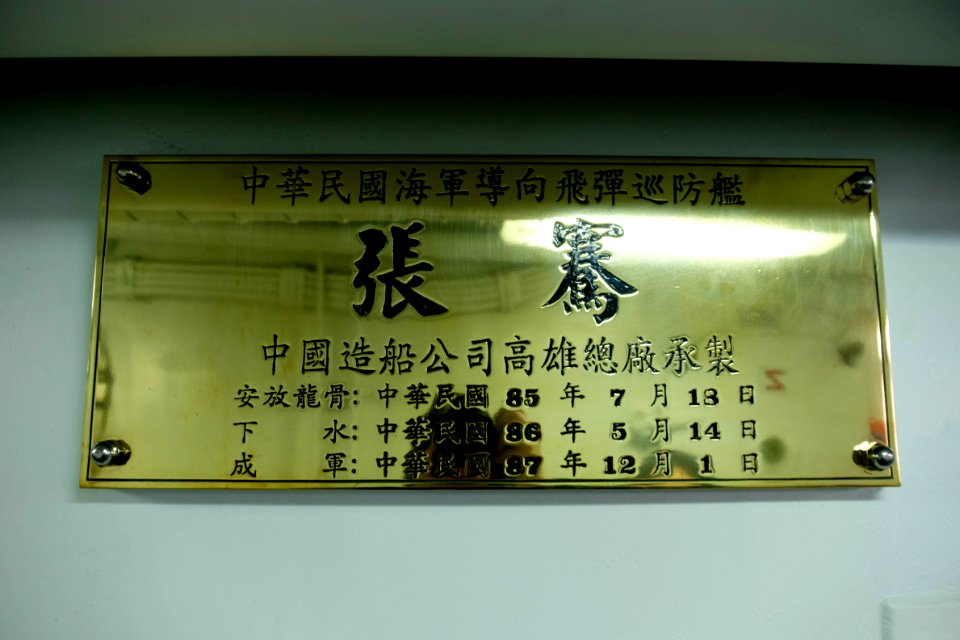 中華民國海軍導向飛彈巡防艦
張騫
中國造船公司高雄總廠承製
安放龍骨: 中華民國 85 年 7 月 18 日
下水: 中華民國 86 年 5 月 14 日
成軍: 中華民國 87 年 12 月 1 日